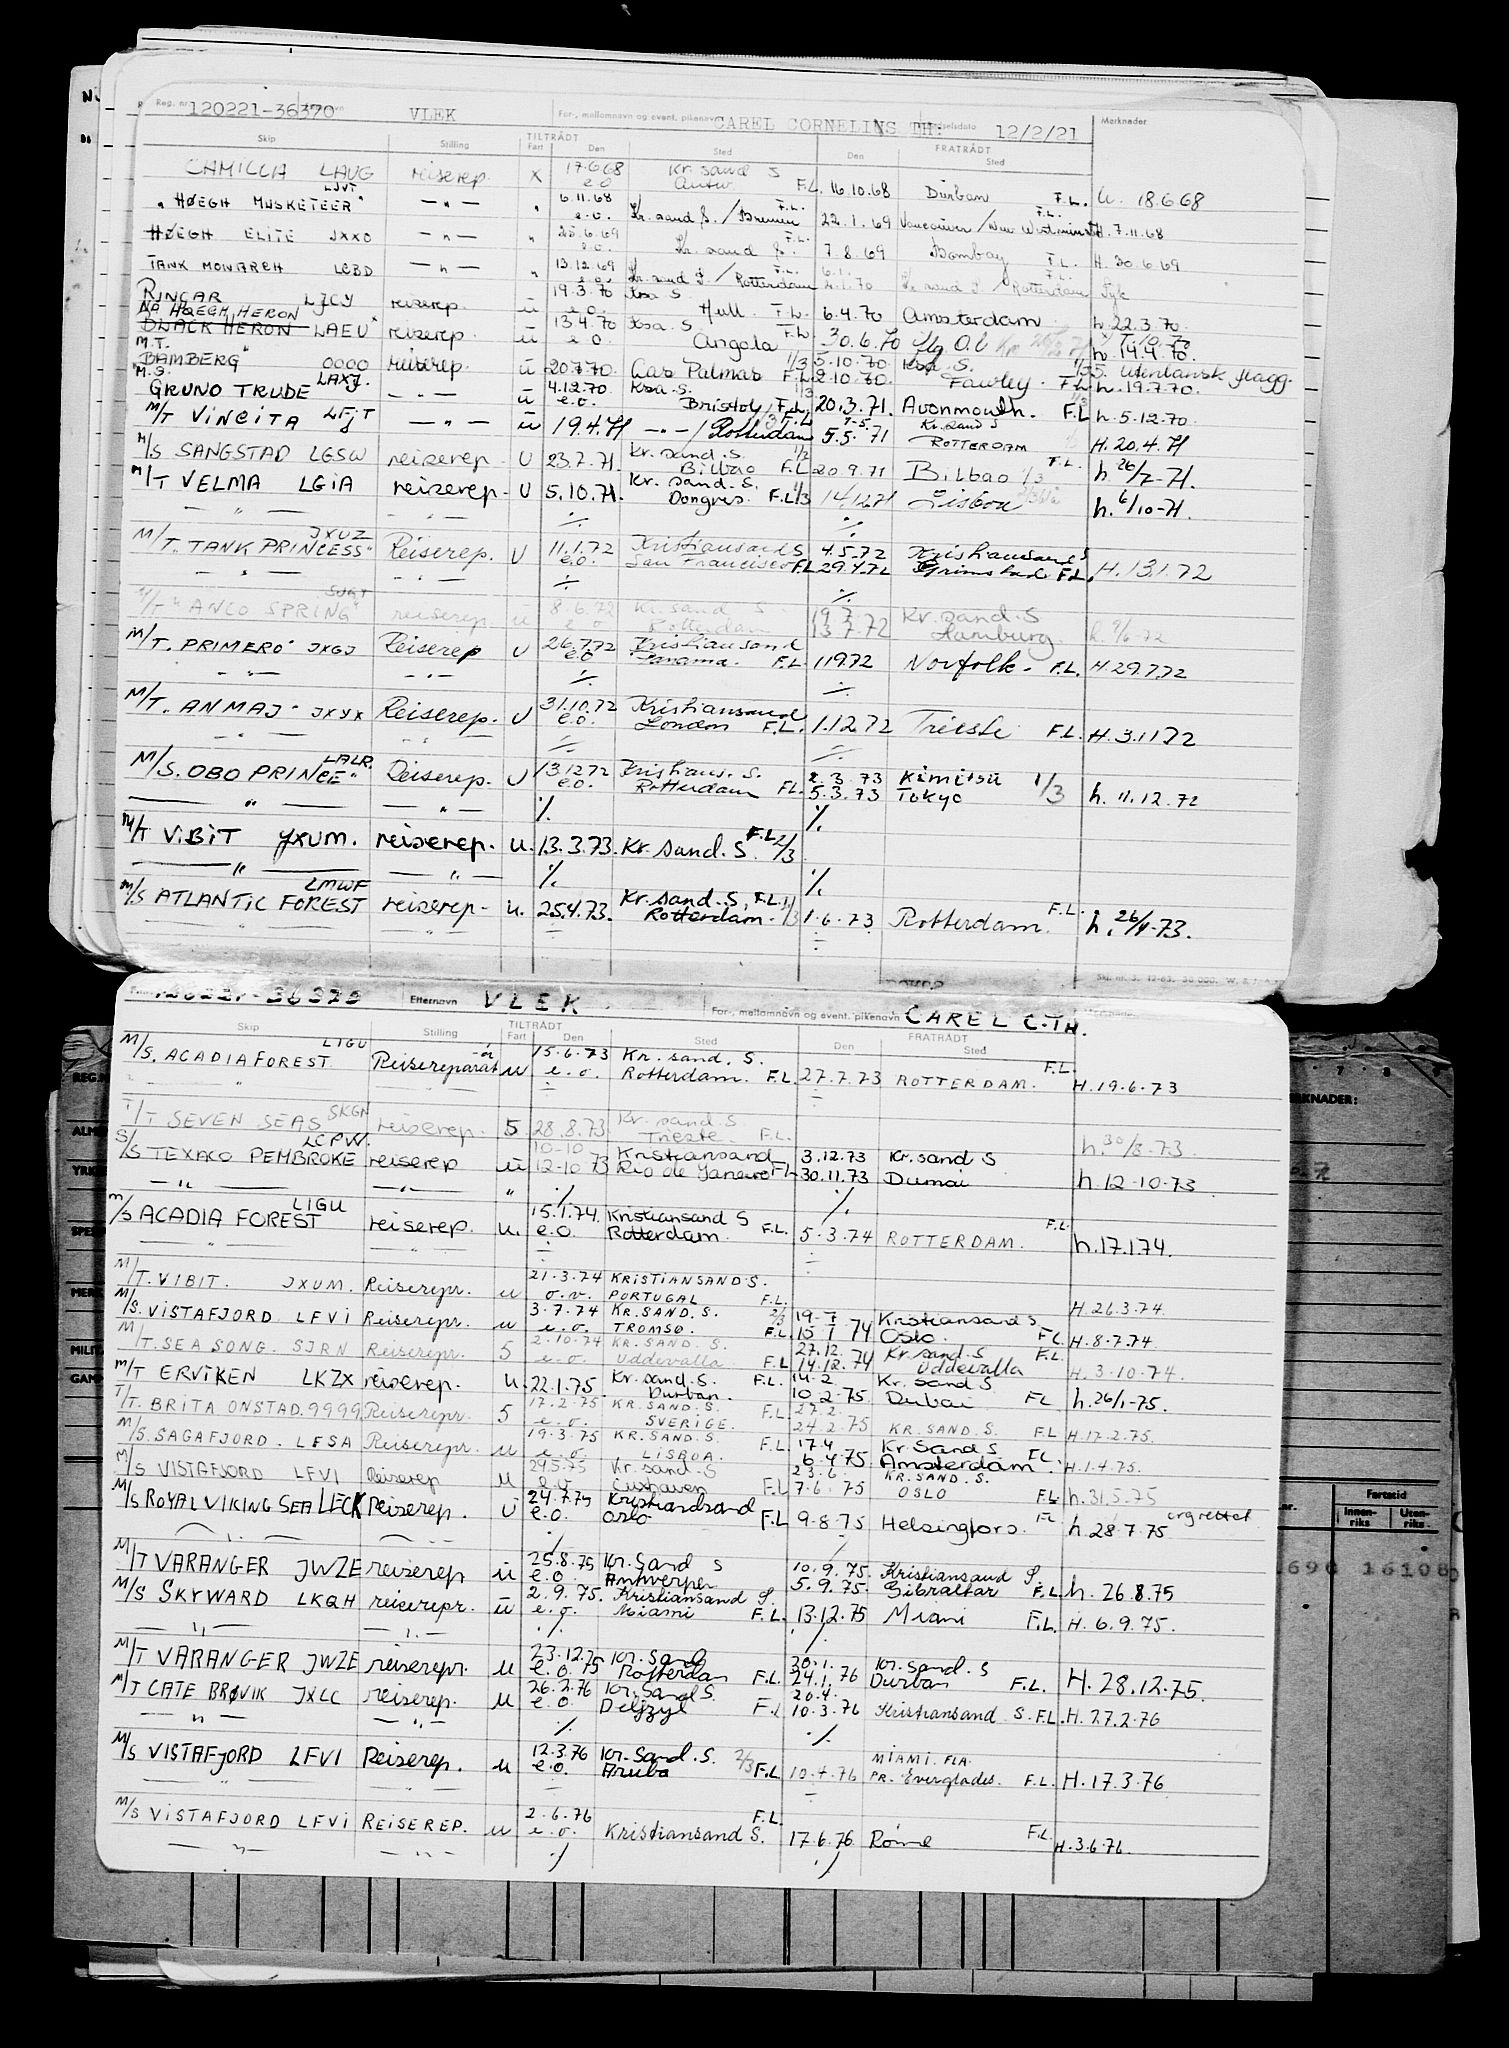 Reg. nr. 120221-36370 VLEK For-, mellomnavn og event. pikenavn CAREL CORNELINS TH: 12/2/21 Merknader
Skip Stilling TILTRÅDT Fart Den Sted FRATRÅDT Den Sted
CAMILLA LAUG reiserep. x 17.6.68 Kr. sand S
e.o. Antw. F.L. 16.10.68 Durban F.L. U. 18.6.68
"HØEGH MUSKETEER" LJVT — " — " 6.11.68 F.L.
e.o. Kr. sand S. / Bremen 22.1.69 Vancouver / New Westminster F.L. H. 7.11.68
HØEGH ELITE JXXO — " — " 25.6.69 F.L.
e.o. Kr. sand S. 7.8.69 Bombay F.L. H. 30.6.69
TANK MONARCH LCBD — " — " 13.12.69 F.L.
e.o. Kr. sand S. / Rotterdam 70 Kr. sand S. / Rotterdam F.L.
RINGAR LJCY reiserep. ü 19.3.70 Ksa S.
e.o. Hull F.L. 6.4.70 Amsterdam h. 22.3.70
NÅ HØEGH HERON
BLACK HERON LAEU reiserep. ü 13.4.70 Ksa. S. F.L.
e.o. Angola 30.6.70 h. 14.4.70.
M.T.
"BAMBERG" 0000 reiserep. ü 20.7.70 Las Palmas 1/3 F.L. 5.10.70 Ksa. S.
2.10.70. Fawley. F.L. h. 19.7.70. utenlansk flagg.
M.S.
GRUNO TRUDE LAXJ. — " — ü 4.12.70 Ksa. S. 1/3
e.o. Bristol F.L. 20.3.71. Avonmouth. 1/3 F.L. h. 5.12.70
M/T VINGITA LFJT — " — ü 19.4.71 — " — / Rotterdam 1/3 F.L. 5.5.71 Kr. sand S
ROTTERDAM H. 20.4.71
M/S SANGSTAD LGSW reiserep. U 23.7.71. Kr. sand. S. 1/2
Bilbao F.L. 20.9.71 Bilbao F.L. 1/3 h. 26/7-71.
M/T VELMA LGIA reiserep. U 5.10.71. Kr. sand. S.
F.L. 1/3 14.12.71 Lisboa h. 6/10-71.
— " — — " — ./. ./.
M/T. TANK PRINCESS" JXUZ Reiserep. U 11.1.72 Kristiansand S 4.5.72 Kristiansand S
e.o. San Francisco F.L. 29.4.72 Grimstad F.L. H. 13.1.72
— " — — " — ./. ./.
M/T "ANCO SPRING" reiserep. ü 8.6.72 Kr. sand S. 19.7. Kr. sand. S
e.o. Rotterdam 13.7.72 Hamburg. h. 9/6-72
M/T. PRIMERO" JXGJ Reiserep U 26.7.72 Kristiansand
e.o Panama. F.L. 1.19.72 Norfolk. F.L. H. 29.7.72
— " — — " — ./. ./.
M/T. "ANMAJ" JXYX Reiserep. U 31.10.72 Kristiansand
e.o. London F.L. 1.12.72 Trieste F.L. H. 3.11.72
— " — — " — ./. ./.
M/S. OBO PRINCE" LALR. Reiserep. U 13.12.72 Kristians. S. 2.3.73 Kimitsu 1/3
e.o. Rotterdam F.L. 5.3.73 Tokyo h. 11.12.72
— " — — " — ./. ./.
M/T VIBIT JXUM. reiserep. u. 13.3.73. Kr. sand. S. F.L. 2/3
— " — — " — ./. ./.
M/S ATLANTIC FOREST LMWF reiserep- u. 25.4.73. Kr. sand. S, F.L. 1/3
Rotterdam. 1.6.73 Rotterdam F.L. h. 26/4-73.
120221-36370 Etternavn VLEK For-, mellomnavn og event. pikenavn CAREL C. TH.
Skip Stilling TILTRÅDT Fart Den Sted FRATRÅDT Den Sted
M/S. ACADIA FOREST LIGU Reisereparat-ør u 15.6.73 Kr. sand. S.
e.o. Rotterdam. F.L. 27.7.73 ROTTERDAM. F.L. H. 19.6.73
T/T SEVEN SEAS SKGN reiserep. 5 28.8.73 Kr. sand. S
Trieste F.L. h. 30/8.73
S/S TEXACO PEMBROKE LCPW. reiserep ü 10-10 Kristiansand 3.12.73 Kr. sand S
12-10 73 Rio de Janeiro F.L. 30.11.73 Dumai h. 12-10-73
— " — — " — " ./. ./.
M/S ACADIA FOREST LIGU reiserep. u. 15.1.74. Kristiansand S
e.o. Rotterdam F.L. 5.3.74 ROTTERDAM. F.L. h. 17.1.74.
M/T. VIBIT. JXUM. Reiserepr. u 21.3.74 KRISTIANSAND S.
o.v. PORTUGAL F.L. H. 26.3.74.
M/S. VISTAFJORD LFVI Reiserepr. u 3.7.74 KR. SAND. S. 2/3 Kristiansand S
e.o. TROMSØ. F.L. 74 Oslo. F.L. H. 8.7.74
M/T. SEA SONG. SJRN Reiserepr. 5 2.10.74 KR. SAND. S. 27.12. Kr. sand. S F.L.
e.o. Uddevalla F.L. 14.12.74 Uddevalla H. 3.10.74
M/T ERVIKEN LKZX reiserep. u. 22.1.75. Kr. sand. S. F.L. 14.2 Kr. sand S.
Durban. 10.2.75 Dubai F.L. h. 26/1-75.
T/T. BRITA ONSTAD. 9999. Reiserepr. 5 17.2.75 KR. SAND. S. 27.2.
e.o. SVERIGE. F.L. 24.2.75 KR. SAND. S. F.L. H. 17.2.75.
M/S. SAGAFJORD. LFSA Reiserepr. u 19.3.75 KR. SAND. S. 17.4 Kr. Sand S
e.o. LISBOA. F.L. 6.4.75 Amsterdam F.L. H. 1.4.75.
M/S VISTAFJORD LFVI Reiserep u 29.5.75 Kr. sand. S 23.6. KR. SAND. S.
e.o Cuxhaven F.L. 7.6.75 OSLO F.L. h. 31.5.75
M/S ROYAL VIKING SEA LECK Reiserep. U 24.7.75 Kristiandsand
e.o. Oslo F.L. 9.8.75 Helsingfors. F.L. h. 28.7.75 ürg rettet
M/T VARANGER JWZE reiserep ü 25.8.75 Kr. Sand S 10.9.75. Kristiansand S.
e.o. Antwerpen 5.9.75. Gibraltar F.L. h. 26.8.75
M/S SKYWARD LKQH reiserepr. ü 2.9.75. Kristiansand S.
e.o. Miami F.L. 13.12.75 Miami F.L. H. 6.9.75.
— " — — " — ./. ./.
M/T VARANGER JWZE reiserepr. u 23.12.75 Kr. Sand 30.1. Kr. sand. S
e.o. Rotterdam F.L. 24.1.76 Durban F.L. H. 28.12.75.
M/T CATE BRØVIK JXLC reiserep. u 26.2.76 Kr. Sand S. 20.4.
e.o. Delfzyl F.L. 10.3.76 Kristiansand S. F.L. H. 27.2.76
— " — — " — ./. ./.
M/S VISTAFJORD LFVI Reiserep. u 12.3.76 Kr. Sand. S. 2/3 MIAMI. FLA.
e.o. Aruba F.L. 10.4.76 PR. Everglades. F.L. H. 17.3.76
M/S VISTAFJORD LFVI REISEREP. u 2.6.76 F.L.
e.o. Kristiansand S. 17.6.76 Rome F.L. H. 3.6.76.
— " — — " — ./. ./.
Fartstid
Innenriks Utenriks
1690 16108